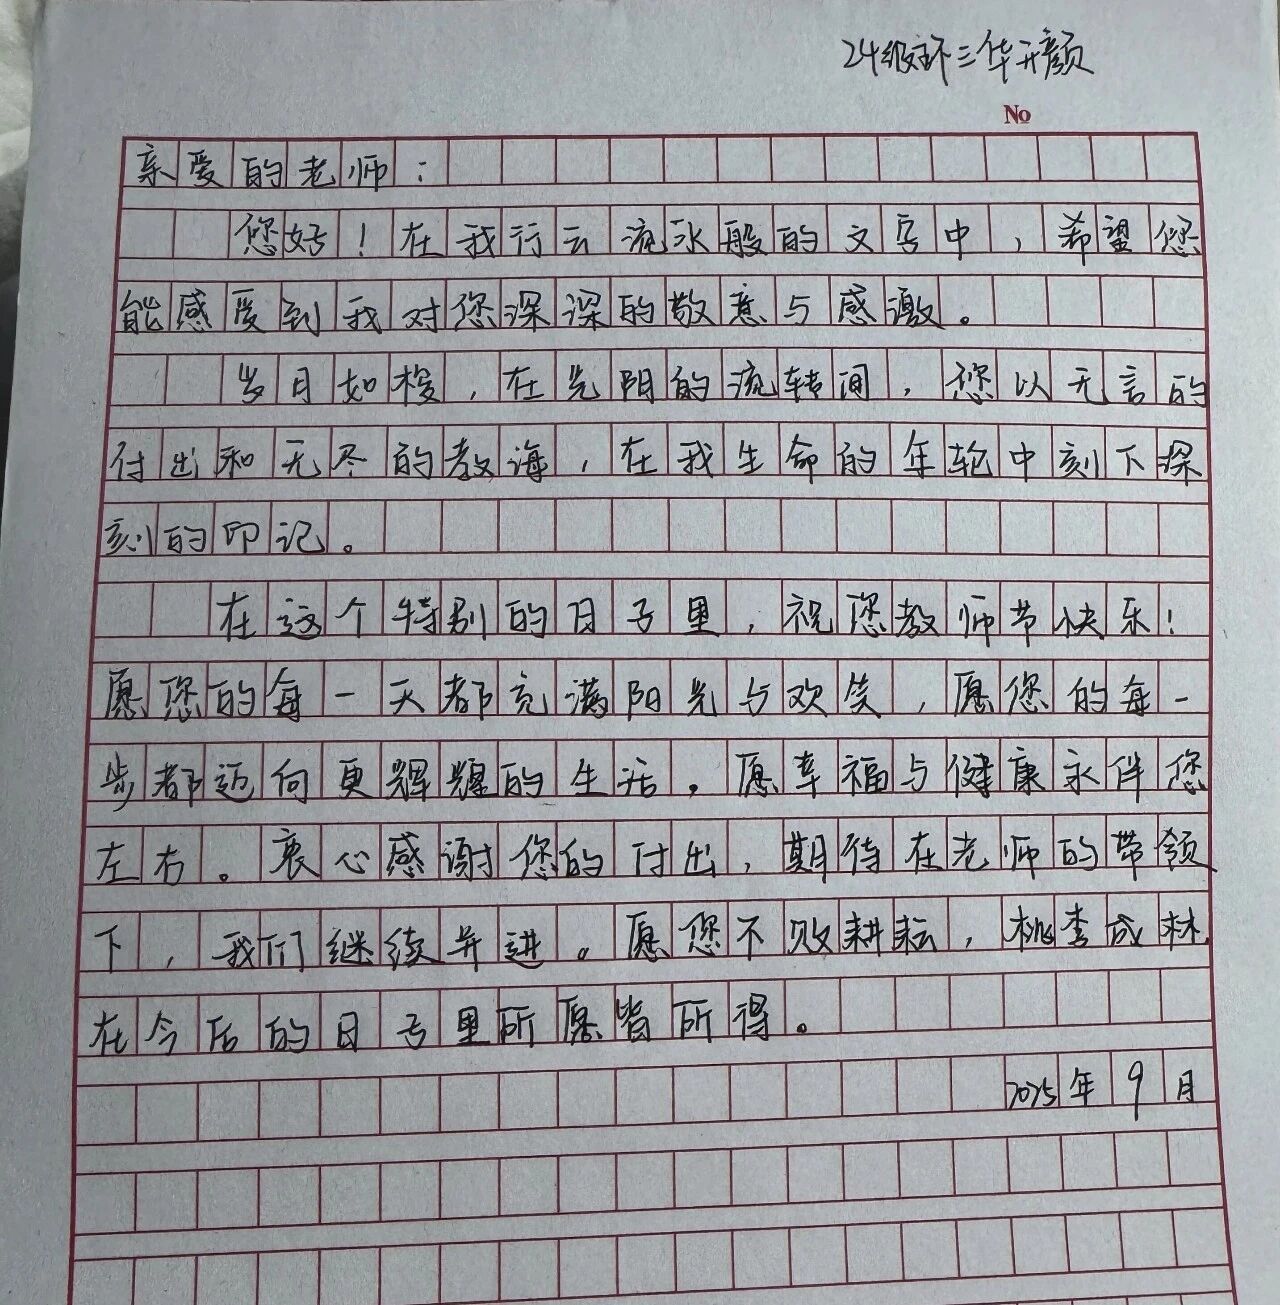 24级环三华开颜
No
亲爱的老师：
您好！在我行云流水般的文字中，希望您
能感受到我对您深深的敬意与感激。
岁月如梭，在光阴的流转间，您以无言的
付出和无尽的教诲，在我生命的年轮中刻下深
刻的印记。
在这个特别的日子里，祝您教师节快乐！
愿您的每一天都充满阳光与欢笑，愿您的每一
步都迈向更辉耀的生活。愿幸福与健康永伴您
左右。衷心感谢您的付出，期待在老师的带领
下，我们继续并进。愿您不败耕耘，桃李成林，
在今后的日子里所愿皆所得。
2025年9月